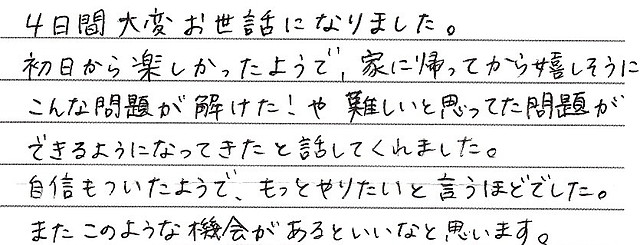 4日間大変お世話になりました。
初日から楽しかったようで、家に帰ってから嬉しそうに
こんな問題が解けた!や難しいと思ってた問題が
できるようになってきたと話してくれました。
自信もついたようで、もっとやりたいと言うほどでした。
またこのような機会があるといいなと思います。